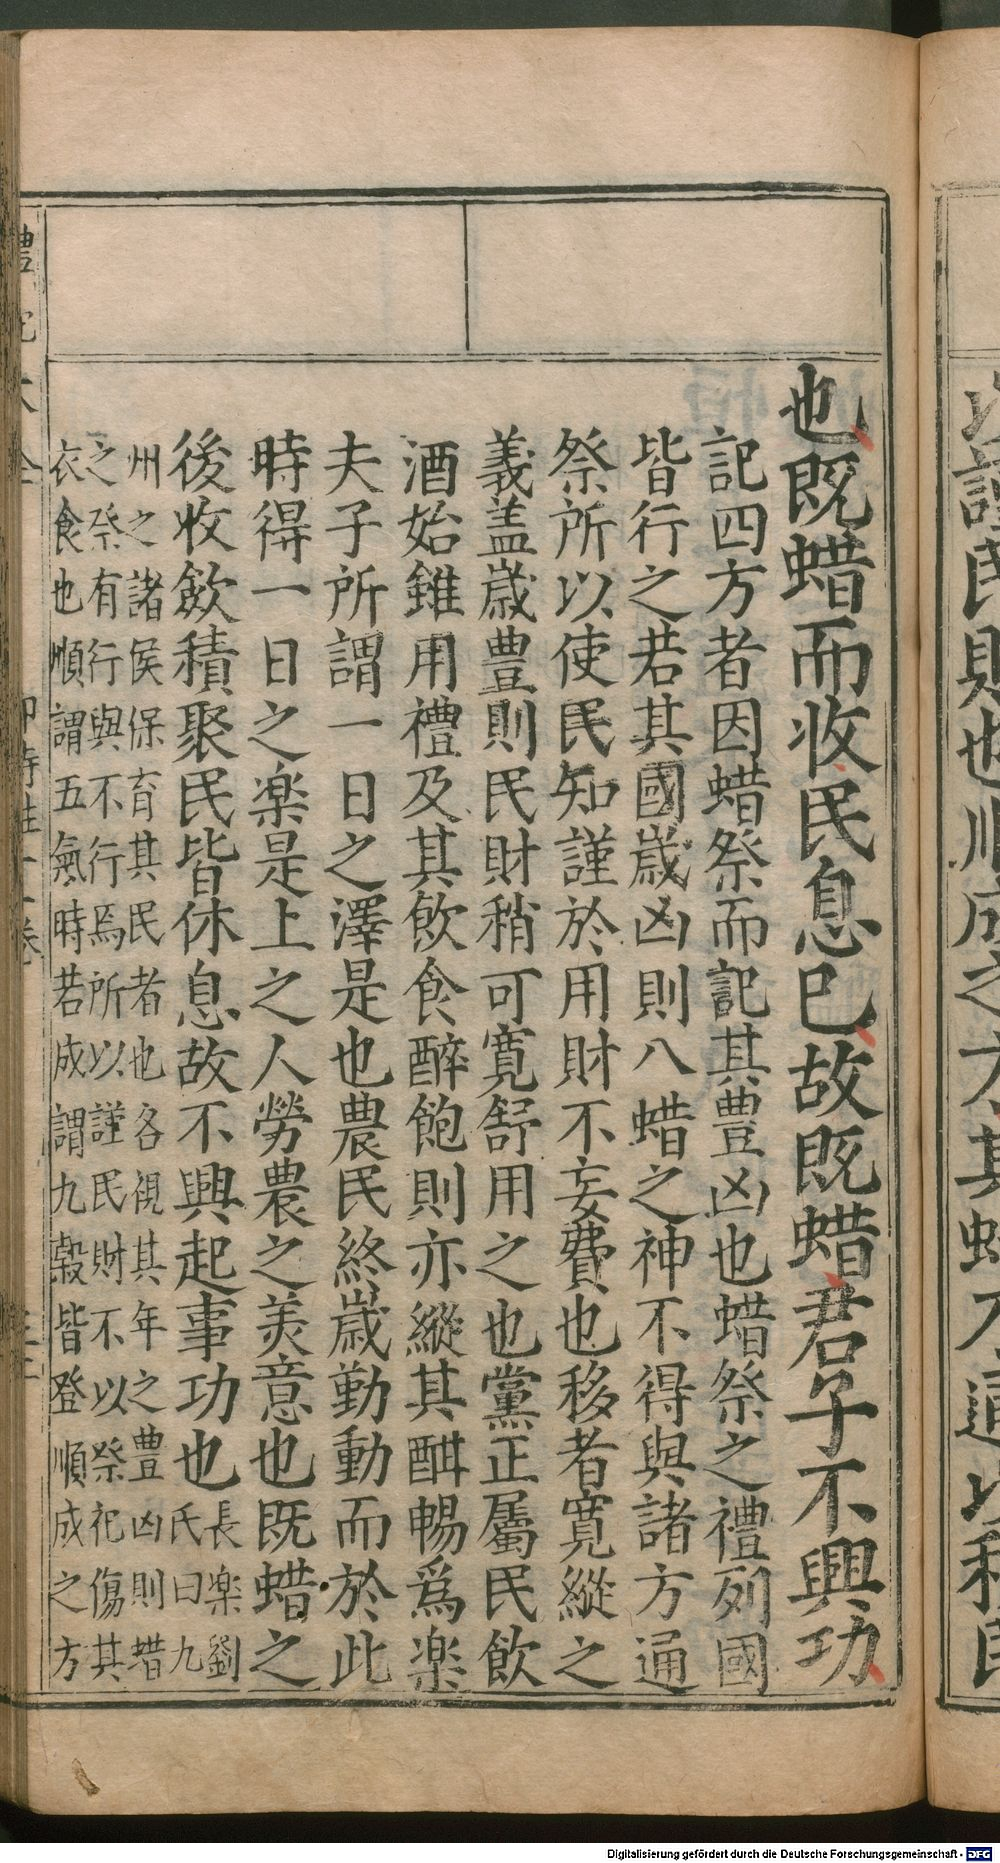 也既蜡而收民息已故既蜡君子不興功
記四方者因蜡祭而記其豊凶也蜡祭之禮列國
皆行之若其國歲凶則八蜡之神不得與諸方通
祭所以使民知謹於用財不妄費也移者寬縱之
義盖歲豊則民財稍可寛舒用之也黨正屬民飲
酒始雖用禮及其飲食醉飽則亦縱其酣暢爲楽
夫子所謂一日之澤是也農民終歲勤動而於此
時得一日之楽是上之人勞農之美意也既蜡之
後收歛積聚民皆休息故不興起事功也長楽劉
氏曰九
州之諸侯保育其民者也各視其年之豊凶則蜡
之祭有行與不行焉所以謹民財不以祭祀傷其
衣食也順謂五氣時若成謂九榖皆登順成之方
禮記大全
郊特牲十一卷
Digitalisierung gefördert durch die Deutsche Forschungsgemeinschaft - DFG